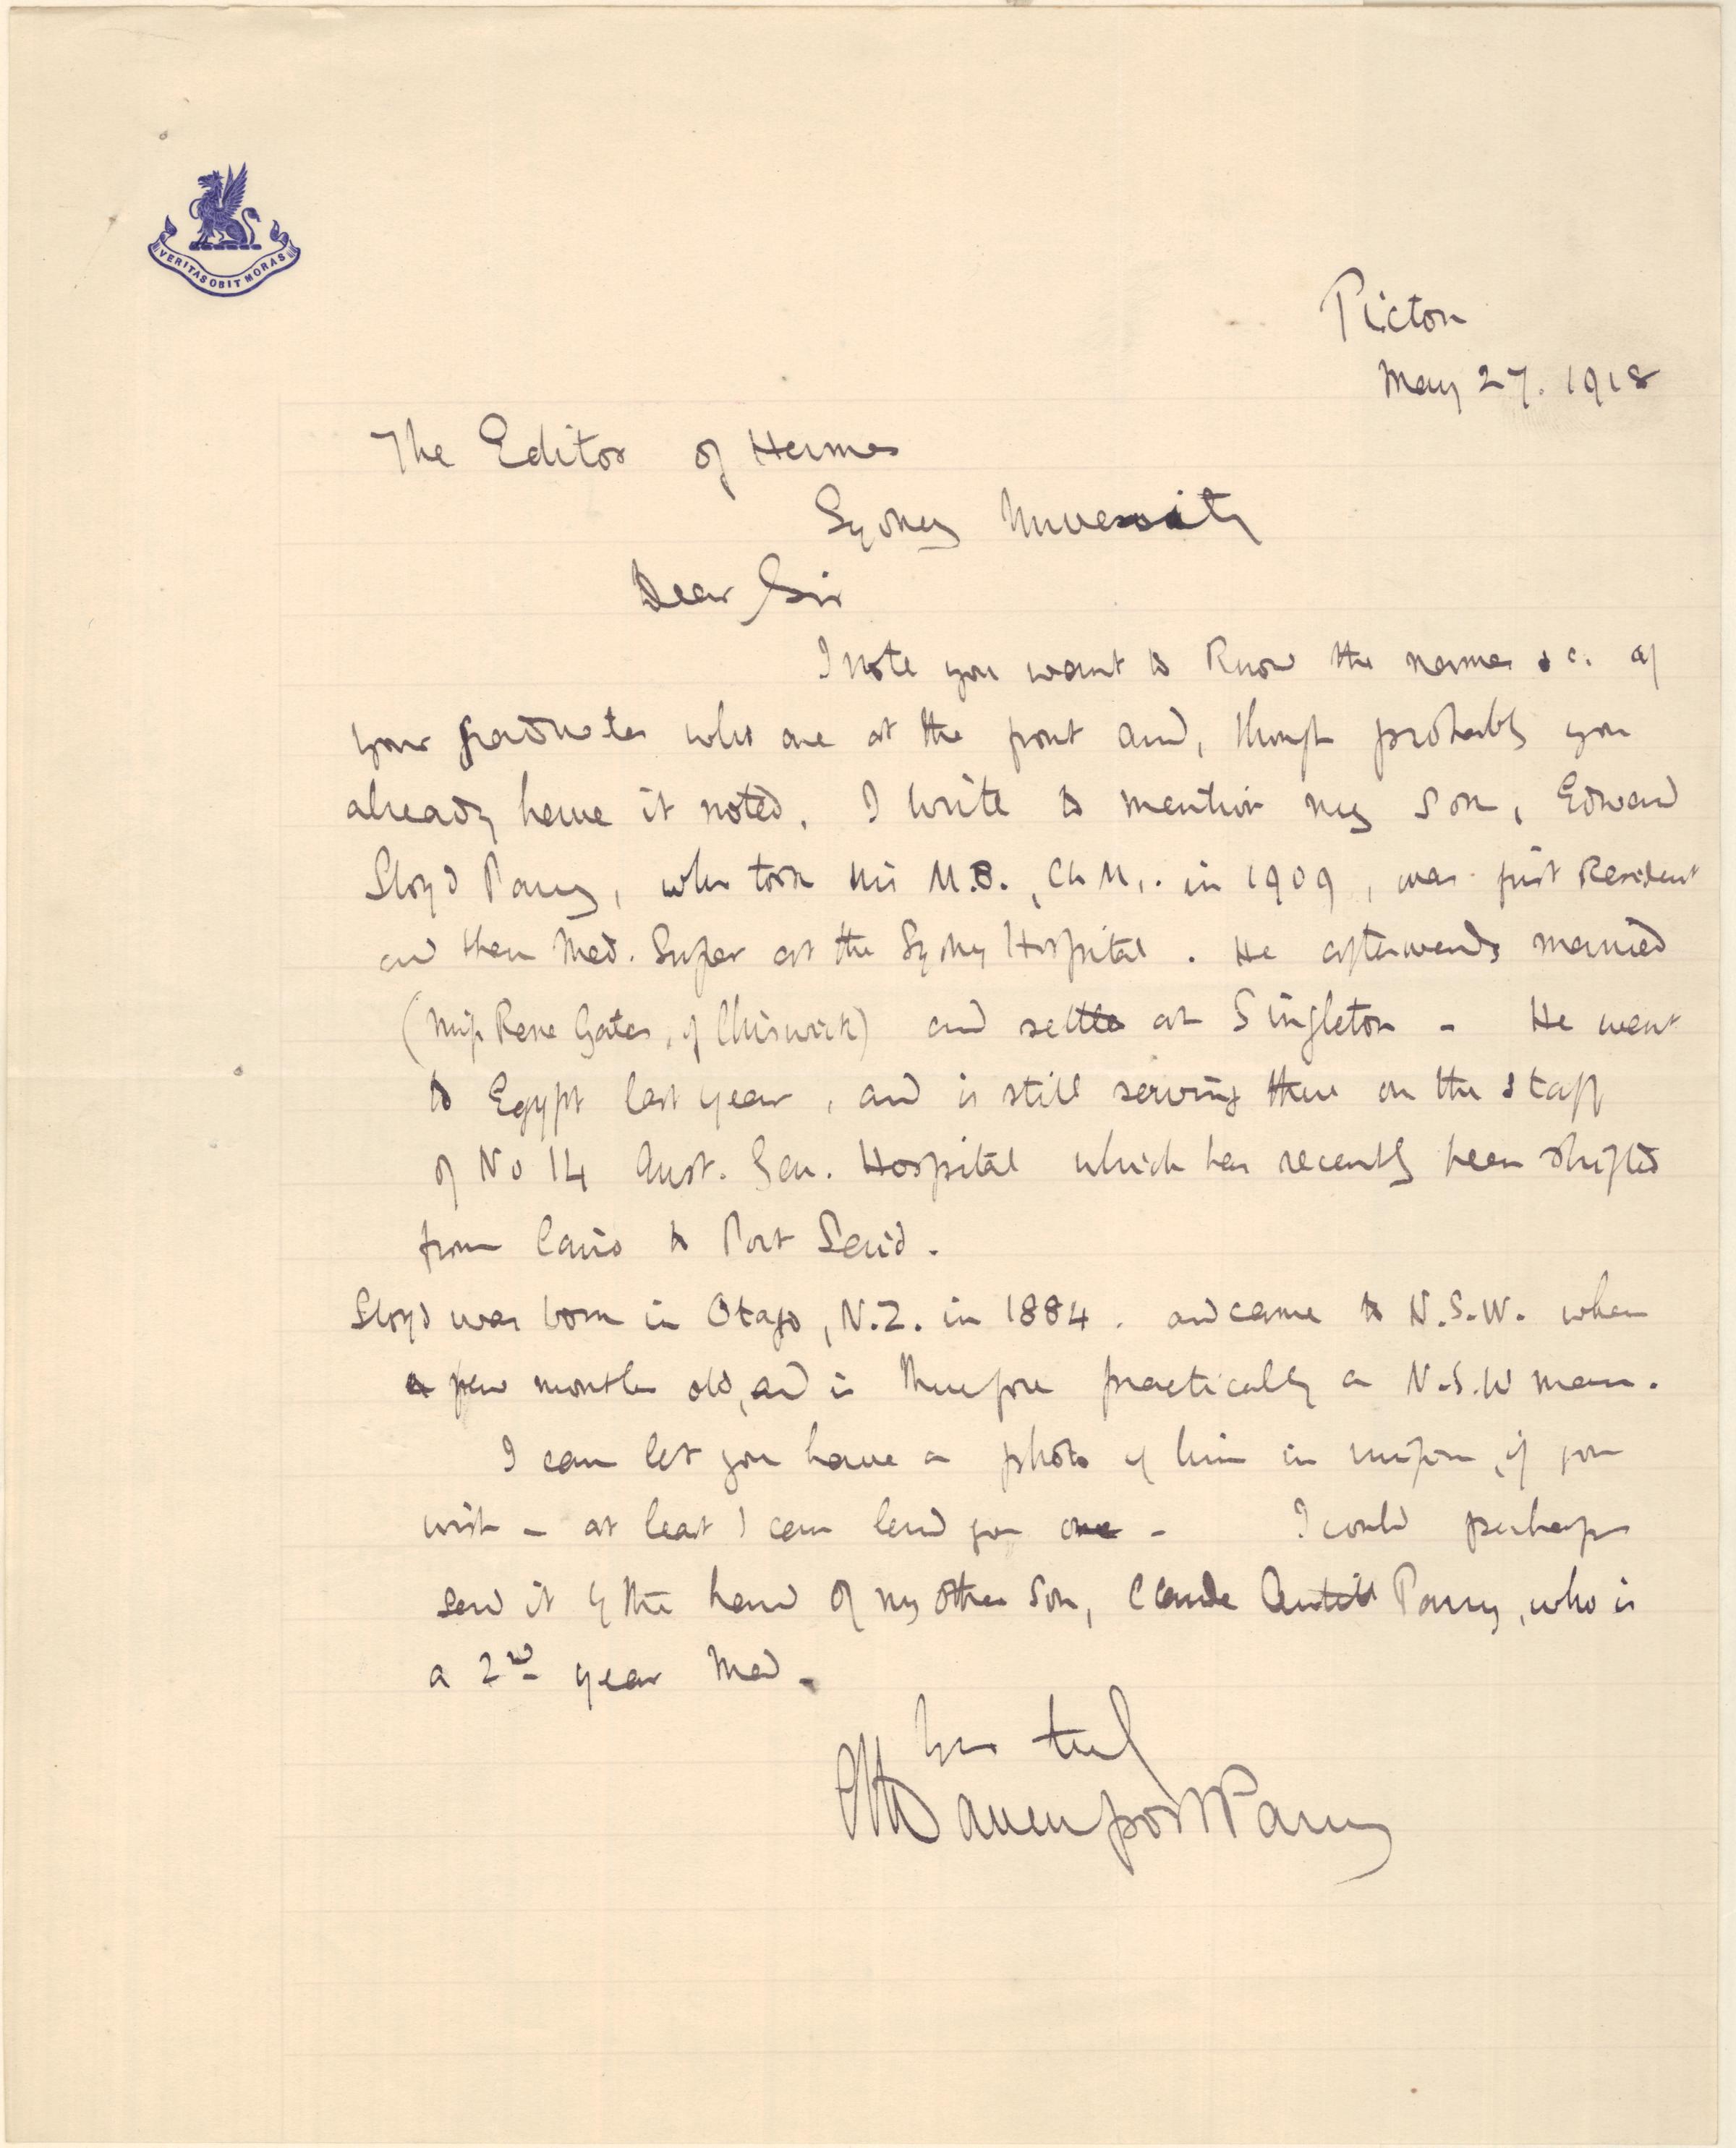 VERITAS OBIT MORAS
Picton
May 27. 1918
The Editor of Hermes
Sydney University
Dear Sir
I note you want to know the names &c. of
your graduates who are at the front and, though probably you
already have it noted, I write to mention my son, Edward
Lloyd Parry, who took his M.B., Ch M., in 1909, was first Resident
and then Med. Super at the Sydney Hospital. He afterwards married
(Miss Rene Gates, of Chiswick) and settled at Singleton - He went
to Egypt last year, and is still serving there on the staff
of No 14 Aust. Gen. Hospital which has recently been shifted
from Cairo to Port Said.
Lloyd was born in Otago, N.Z. in 1884. and came to N.S.W. when
a few months old, and is therefore practically a N.S.W man.
I can let you have a photo of him in uniform, if you
wish - at least I can lend you one - I could perhaps
send it by the hand of my other son, Claude Antill Parry, who is
a 2nd year Med.
Yrs truly
Davenport Parry